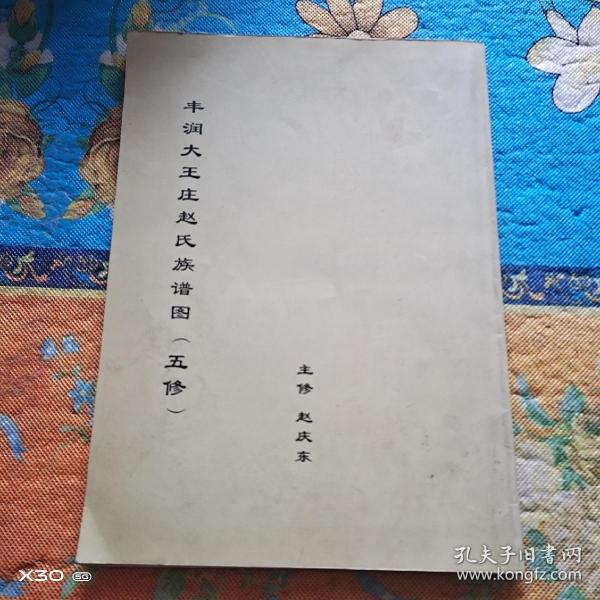 丰润大王庄赵氏族谱图（五修）
主修 赵庆东
X30 5G
孔夫子旧书网
www.kongfz.com